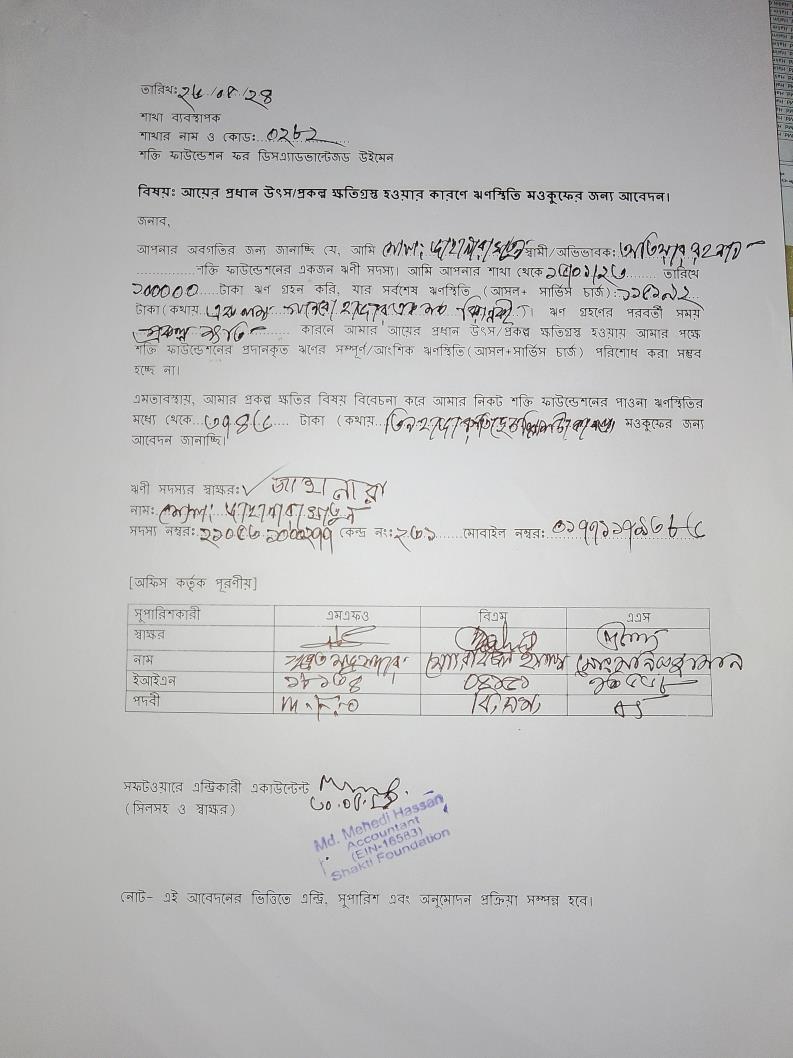 তারিখ: ২৮/০৫/২৪
শাখা ব্যবস্থাপক
শাখার নাম ও কোড:...০২৮২
শক্তি ফাউন্ডেশন ফর ডিসএ্যাডভান্টেজড উইমেন
বিষয়: আয়ের প্রধান উৎস/প্রকল্প ক্ষতিগ্রস্থ হওয়ার কারণে ঋণস্থিতি মওকুফের জন্য আবেদন।
জনাব,
আপনার অবগতির জন্য জানাচ্ছি যে, আমি মোছা: জাহানারা খাতুন স্বামী/অভিভাবক: আতিয়ার রহমান
...............শক্তি ফাউন্ডেশনের একজন ঋণী সদস্য। আমি আপনার শাখা থেকে........ তারিখে
১০০০০০.....টাকা ঋণ গ্রহন করি, যার সর্বশেষ ঋণস্থিতি (আসল+ সার্ভিস চার্জ):
টাকা (কথায় এক লক্ষ হাজার একশত বিরানব্বই)। ঋণ গ্রহণের পরবর্তী সময়
প্রকল্প ক্ষতি........ কারনে আমার আয়ের প্রধান উৎস/প্রকল্প ক্ষতিগ্রস্থ হওয়ায় আমার পক্ষে
শক্তি ফাউন্ডেশনের প্রদানকৃত ঋণের সম্পূর্ণ/আংশিক ঋণস্থিতি(আসল+সার্ভিস চার্জ) পরিশোধ করা সম্ভব
হচ্ছে না।
এমতাবস্থায়, আমার প্রকল্প ক্ষতির বিষয় বিবেচনা করে আমার নিকট শক্তি ফাউন্ডেশনের পাওনা ঋণস্থিতির
মধ্যে থেকে.... টাকা (কথায়...তিন হাজার মওকুফের জন্য
আবেদন জানাচ্ছি।
ঋণী সদস্যর স্বাক্ষর: জাহানারা
নাম: মোছা: জাহানারা খাতুন
সদস্য নম্বর: কেন্দ্র নং: ২৬১......মোবাইল নম্বর:
[অফিস কর্তৃক পূরণীয়]
সুপারিশকারী এমএফও বিএম এএস
স্বাক্ষর
নাম
ইআইএন ১৮১৬৪ ০৪১৫১
পদবী M.F.O বি,এম, AS
সফটওয়ারে এন্ট্রিকারী একাউন্টেন্ট
(সিলসহ ও স্বাক্ষর)
Md. Mehedi Hassan
Accountant
(EIN-16583)
Shakti Foundation
নোট- এই আবেদনের ভিত্তিতে এন্ট্রি, সুপারিশ এবং অনুমোদন প্রক্রিয়া সম্পন্ন হবে।